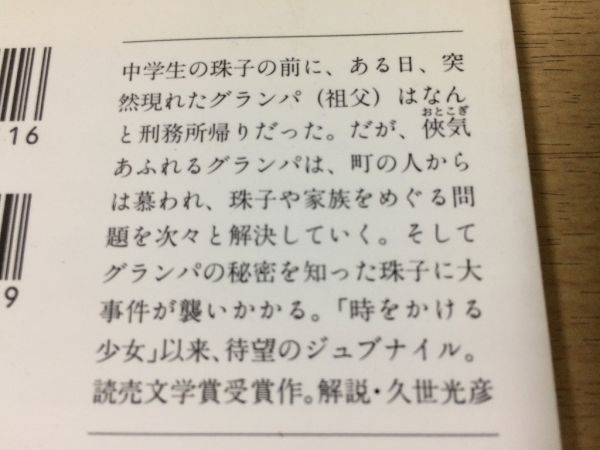 中学生の珠子の前に、ある日、突
然現れたグランパ（祖父）はなん
おとこぎ
と刑務所帰りだった。だが、俠気
あふれるグランパは、町の人から
は慕われ、珠子や家族をめぐる問
題を次々と解決していく。そして
グランパの秘密を知った珠子に大
事件が襲いかかる。「時をかける
少女」以来、待望のジュブナイル。
読売文学賞受賞作。解説・久世光彦
16
9